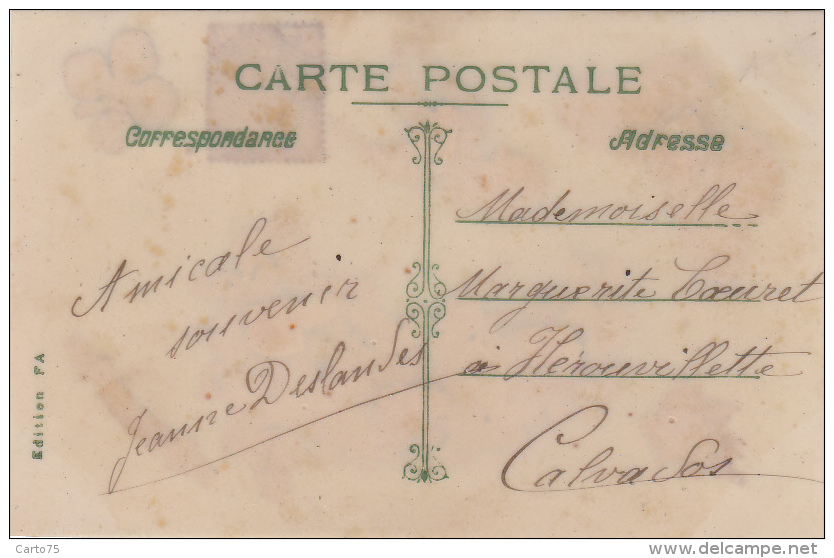 CARTE POSTALE
Correspondance
Adresse
Amicale
souvenir
Jeanne Deslandes
Mademoiselle
Marguerite Cœuret
à Hérouvillette
Calvados
Edition FA
Carto75
www.delcampe.net